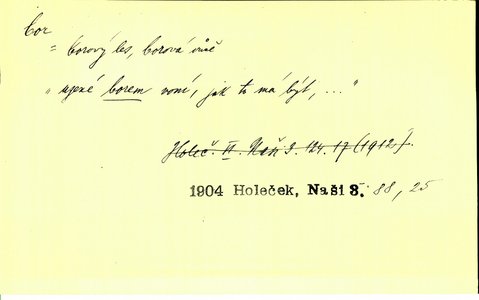 bor
= borový les, borová vůně
„ upné borem voní, jak to má být, ... "
Holeč. II. Naši 3. 124. 17 (1912).
1904 Holeček, Naši 3. 88, 25